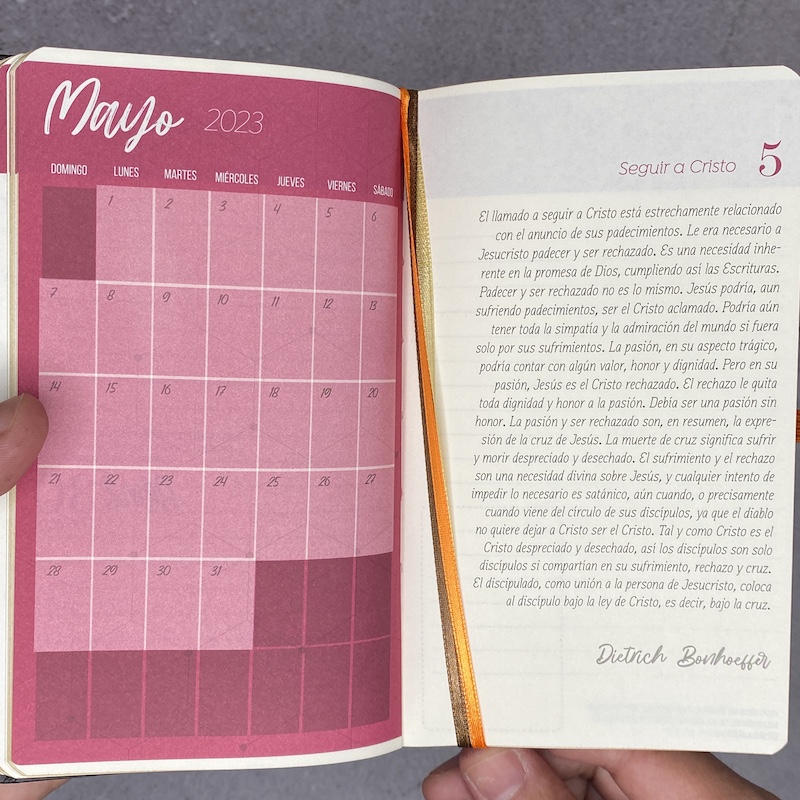 Mayo 2023
DOMINGO LUNES MARTES MIÉRCOLES JUEVES VIERNES SÁBADO
1 2 3 4 5 6
7 8 9 10 11 12 13
14 15 16 17 18 19 20
21 22 23 24 25 26 27
28 29 30 31
Seguir a Cristo 5
El llamado a seguir a Cristo está estrechamente relacionado
con el anuncio de sus padecimientos. Le era necesario a
Jesucristo padecer y ser rechazado. Es una necesidad inhe-
rente en la promesa de Dios, cumpliendo así las Escrituras.
Padecer y ser rechazado no es lo mismo. Jesús podría, aun
sufriendo padecimientos, ser el Cristo aclamado. Podría aún
tener toda la simpatía y la admiración del mundo si fuera
solo por sus sufrimientos. La pasión, en su aspecto trágico,
podría contar con algún valor, honor y dignidad. Pero en su
pasión, Jesús es el Cristo rechazado. El rechazo le quita
toda dignidad y honor a la pasión. Debía ser una pasión sin
honor. La pasión y ser rechazado son, en resumen, la expre-
sión de la cruz de Jesús. La muerte de cruz significa sufrir
y morir despreciado y desechado. El sufrimiento y el rechazo
son una necesidad divina sobre Jesús, y cualquier intento de
impedir lo necesario es satánico, aún cuando, o precisamente
cuando viene del círculo de sus discípulos, ya que el diablo
no quiere dejar a Cristo ser el Cristo. Tal y como Cristo es el
Cristo despreciado y desechado, así los discípulos son solo
discípulos si compartían en su sufrimiento, rechazo y cruz.
El discipulado, como unión a la persona de Jesucristo, coloca
al discípulo bajo la ley de Cristo, es decir, bajo la cruz.
Dietrich Bonhoeffer